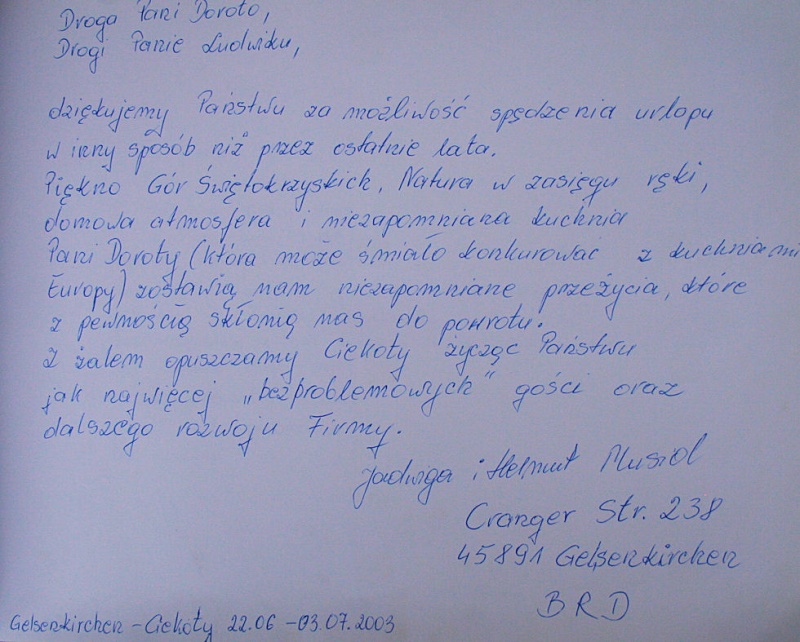 Droga Pani Doroto,
Drogi Panie Ludwiku,
dziękujemy Państwu za możliwość spędzenia urlopu
w inny sposób niż przez ostatnie lata.
Piękno Gór Świętokrzyskich, Natura w zasięgu ręki,
domowa atmosfera i niezapomniana kuchnia
Pani Doroty (która może śmiało konkurować z kuchniami
Europy) zostawią nam niezapomniane przeżycia, które
z pewnością skłonią nas do powrotu.
Z żalem opuszczamy Ciekoty życząc Państwu
jak najwięcej „bezproblemowych" gości oraz
dalszego rozwoju Firmy.
Jadwiga i Helmut Musiol
Cranger Str. 238
45891 Gelsenkirchen
BRD
Gelsenkirchen - Ciekoty 22.06 - 03.07.2003